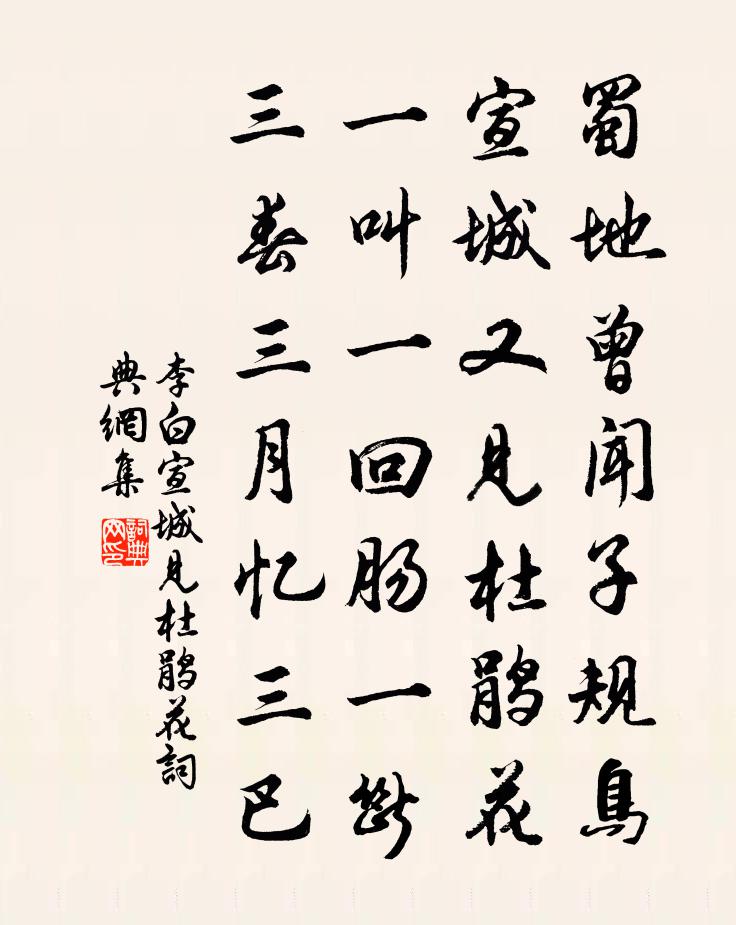 蜀地曾闻子规鸟
宣城又见杜鹃花
一叫一回肠一断
三春三月忆三巴
李白宣城見杜鹃花詞
典網集
詞典
网印